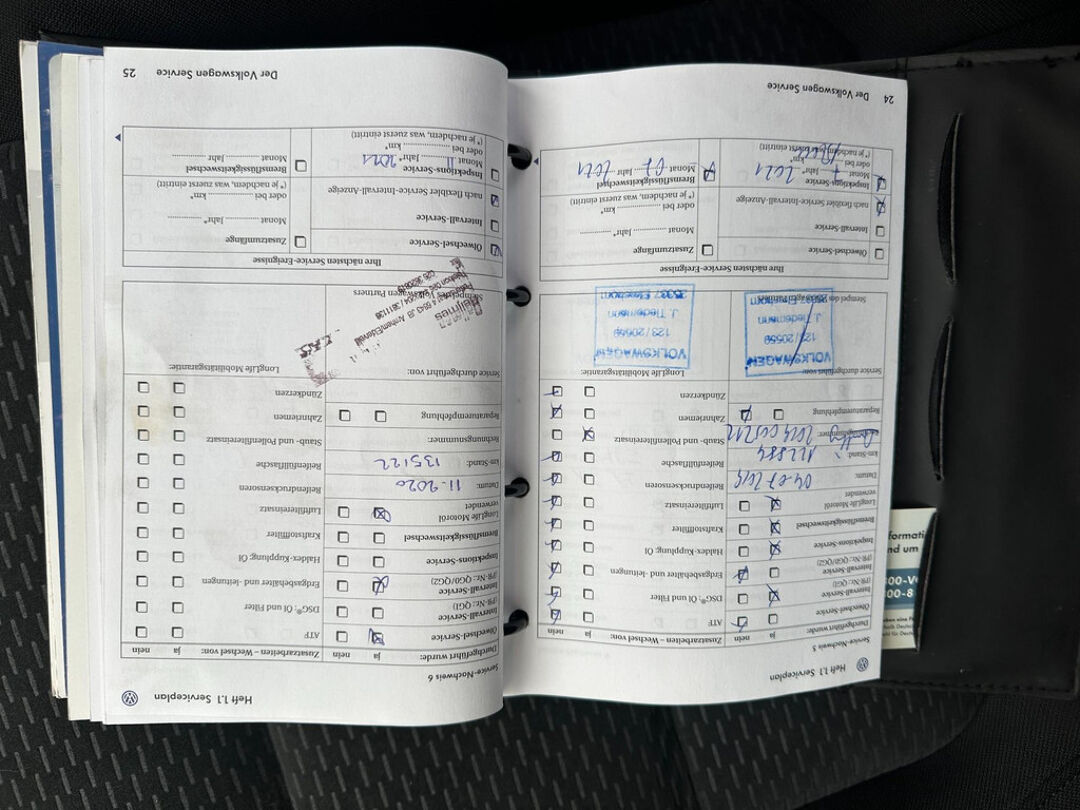 Heft 1.1 Serviceplan
Service-Nachweis 5
Durchgeführt wurde: ja nein
Ölwechsel-Service
Intervall-Service
(PR-Nr.: QG1)
Intervall-Service
(PR-Nr.: QG0/QG2)
Inspektions-Service
Bremsflüssigkeitswechsel
LongLife Motoröl
verwendet
Datum: 04-07 2019
km-Stand: 122884
Reparaturempfehlung
Service durchgeführt von:
VOLKSWAGEN
123 / 20559
J. Tiedemann
Stempel des Volkswagen Partners
ja nein
ATF
DSG®: Öl und Filter
Erdgasbehälter und -leitungen
Haldex-Kupplung Öl
Kraftstofffilter
Luftfiltereinsatz
Reifendrucksensoren
Reifenfüllflasche
Staub- und Pollenfiltereinsatz
Zahnriemen
Zündkerzen
LongLife Mobilitätsgarantie:
VOLKSWAGEN
123 / 20559
J. Tiedemann
Ihre nächsten Service-Ereignisse
Ölwechsel-Service
Intervall-Service
nach flexibler Service-Intervall-Anzeige
Inspektions-Service
Monat 7 Jahr* 2021
oder bei km*
(*je nachdem, was zuerst eintritt)
Zusatzumfänge
Monat Jahr*
oder bei km*
(*je nachdem, was zuerst eintritt)
Bremsflüssigkeitswechsel
Monat 07 Jahr 2021
24 Der Volkswagen Service
Heft 1.1 Serviceplan
Service-Nachweis 6
Durchgeführt wurde: ja nein
Ölwechsel-Service
Intervall-Service
(PR-Nr.: QG1)
Intervall-Service
(PR-Nr.: QG0/QG2)
Inspektions-Service
Bremsflüssigkeitswechsel
LongLife Motoröl
verwendet
Datum: 11-2020
km-Stand: 135122
Rechnungsnummer:
Reparaturempfehlung
Service durchgeführt von:
Stempel des Volkswagen Partners
Zusatzarbeiten – Wechsel von: ja nein
ATF
DSG®: Öl und Filter
Erdgasbehälter und -leitungen
Haldex-Kupplung Öl
Kraftstofffilter
Luftfiltereinsatz
Reifendrucksensoren
Reifenfüllflasche
Staub- und Pollenfiltereinsatz
Zahnriemen
Zündkerzen
LongLife Mobilitätsgarantie:
Ihre nächsten Service-Ereignisse
Ölwechsel-Service
Intervall-Service
nach flexibler Service-Intervall-Anzeige
Inspektions-Service
Monat 11 Jahr* 2021
oder bei km*
(*je nachdem, was zuerst eintritt)
Zusatzumfänge
Monat Jahr*
oder bei km*
(*je nachdem, was zuerst eintritt)
Bremsflüssigkeitswechsel
Monat Jahr
Der Volkswagen Service 25